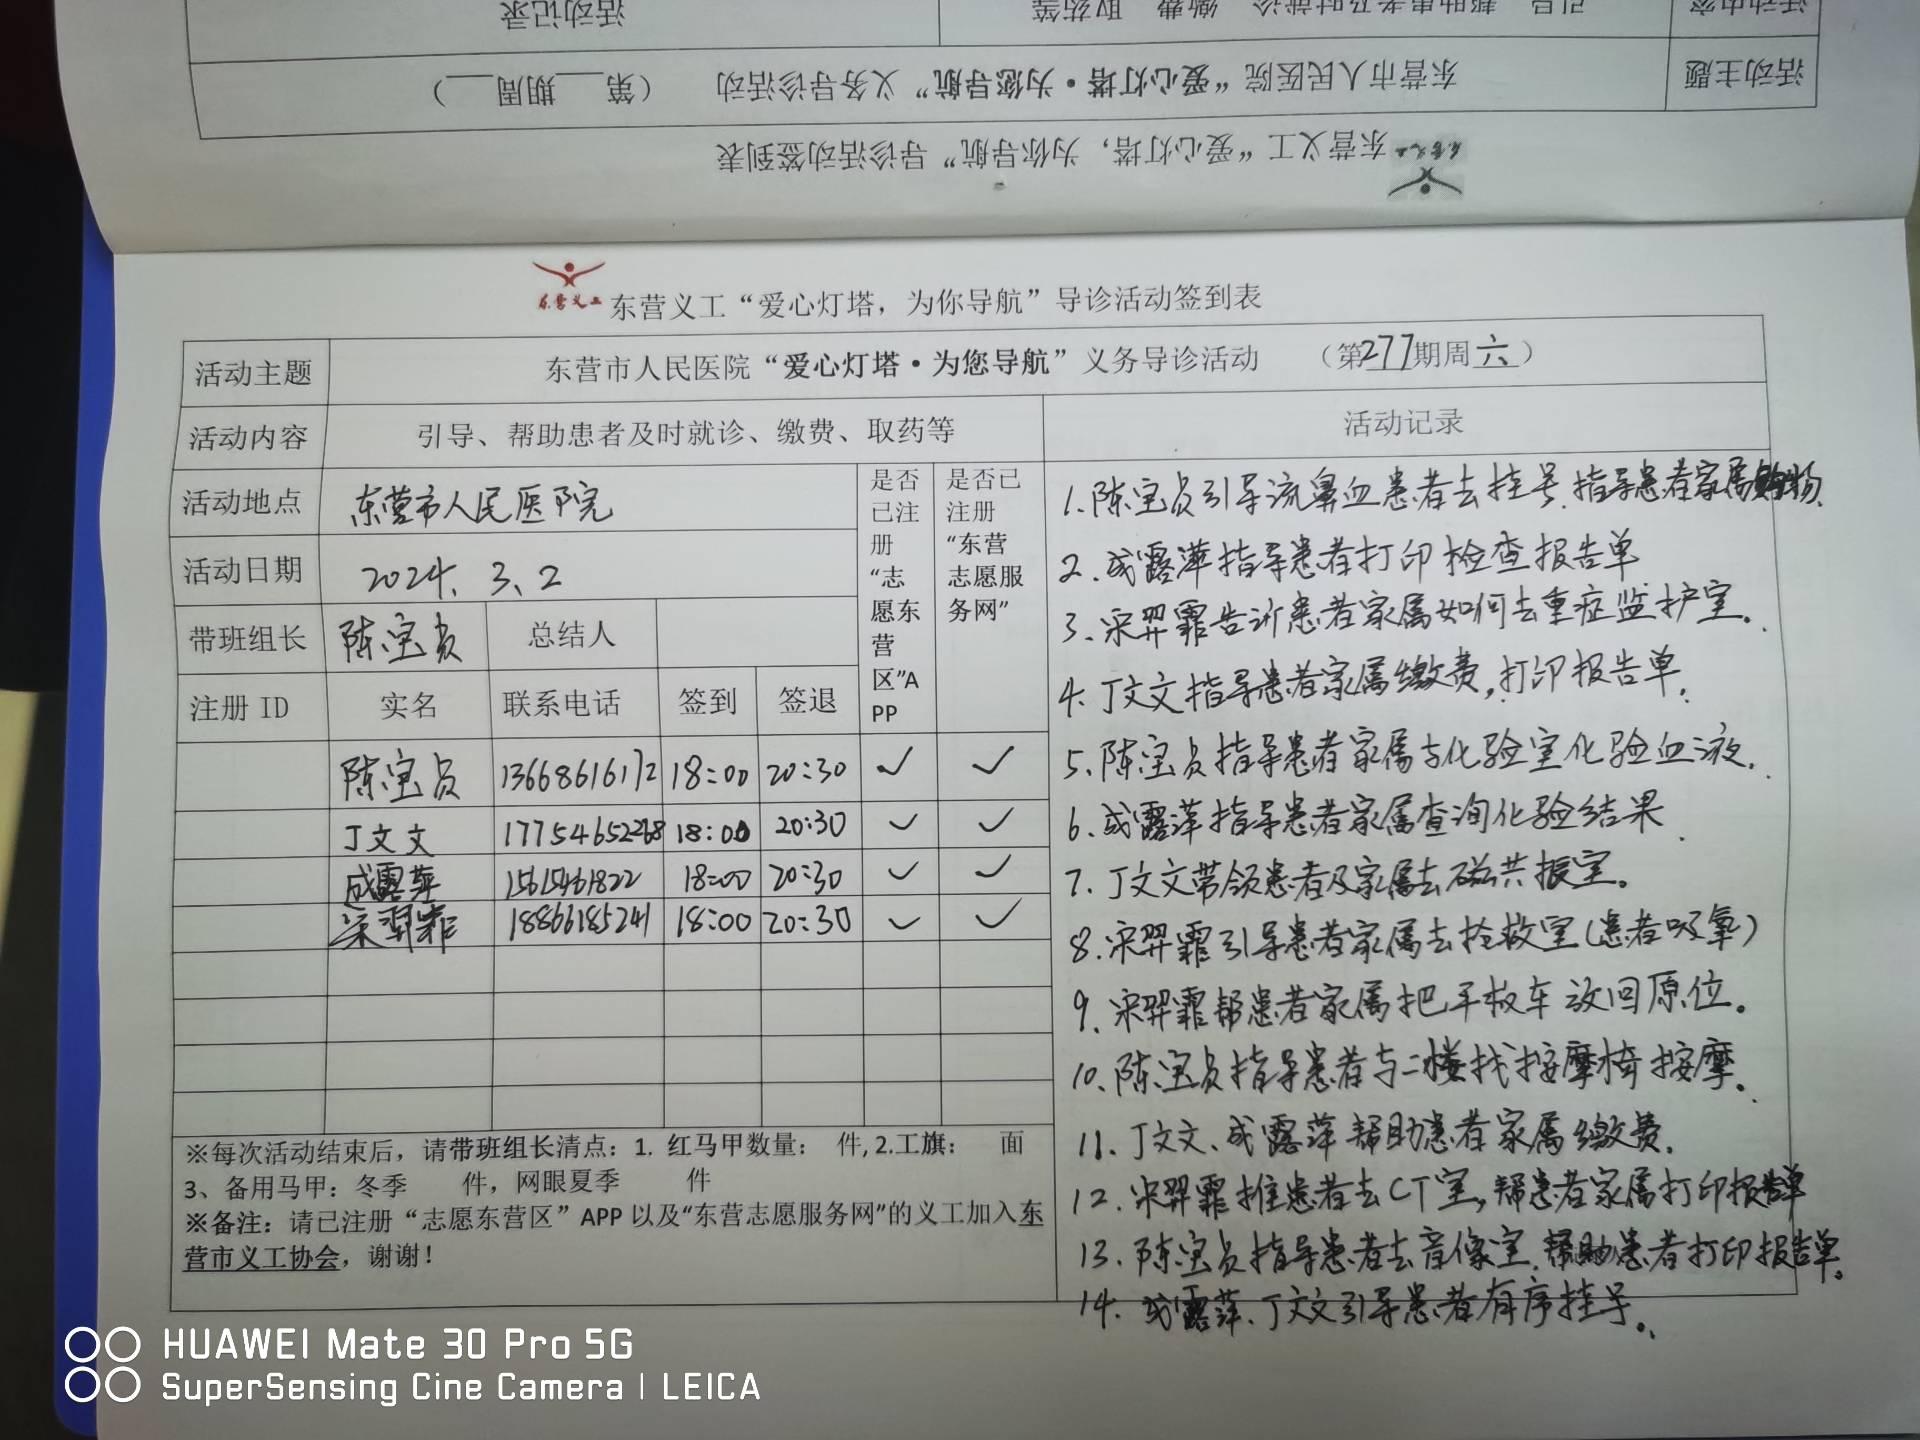 活动记录
引导、帮助患者及时就诊、缴费、取药等
活动内容
活动主题
东营市人民医院“爱心灯塔·为您导航”义务导诊活动 （第 期周 ）
东营义工“爱心灯塔，为你导航”导诊活动签到表
东营义工
东营义工“爱心灯塔，为你导航”导诊活动签到表
活动主题 东营市人民医院“爱心灯塔·为您导航”义务导诊活动 （第277期周六）
活动内容 引导、帮助患者及时就诊、缴费、取药等 活动记录
活动地点 东营市人民医院
活动日期 2024.3.2
带班组长 陈宝员 总结人
是否已注册“志愿东营区”APP
是否已注册“东营志愿服务网”
注册 ID 实名 联系电话 签到 签退
陈宝员 13668616172 18:00 20:30 ✓ ✓
丁文文 17754652268 18:00 20:30 ✓ ✓
成露萍 15615461822 18:00 20:30 ✓ ✓
宋羿霏 18866185241 18:00 20:30 ✓ ✓
※每次活动结束后，请带班组长清点：1. 红马甲数量： 件, 2.工旗： 面
3、备用马甲：冬季 件，网眼夏季 件
※备注：请已注册“志愿东营区”APP 以及“东营志愿服务网”的义工加入东
营市义工协会，谢谢！
1.陈宝员引导流鼻血患者去挂号.指导患者家属购物.
2.成露萍指导患者打印检查报告单
3、宋羿霏告诉患者家属如何去重症监护室.
4.丁文文指导患者家属缴费,打印报告单.
5.陈宝员指导患者家属去化验室化验血液.
6.成露萍指导患者家属查询化验结果.
7.丁文文带领患者及家属去磁共振室。
8.宋羿霏引导患者家属去抢救室(患者吸氧)
9.宋羿霏帮患者家属把平板车放回原位。
10.陈宝员指导患者去二楼找按摩椅按摩.
11.丁文文、成露萍帮助患者家属缴费.
12.宋羿霏推患者去CT室,帮患者家属打印报告单
13.陈宝员指导患者去音像室.帮助患者打印报告单。
14.成露萍、丁文文引导患者有序挂号。
HUAWEI Mate 30 Pro 5G
SuperSensing Cine Camera | LEICA